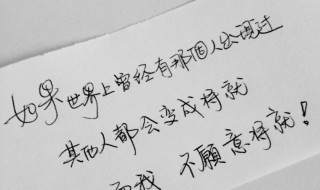 如果世界上曾经有那個人出现过
其他人都会变成将就
而我 不願意将就！